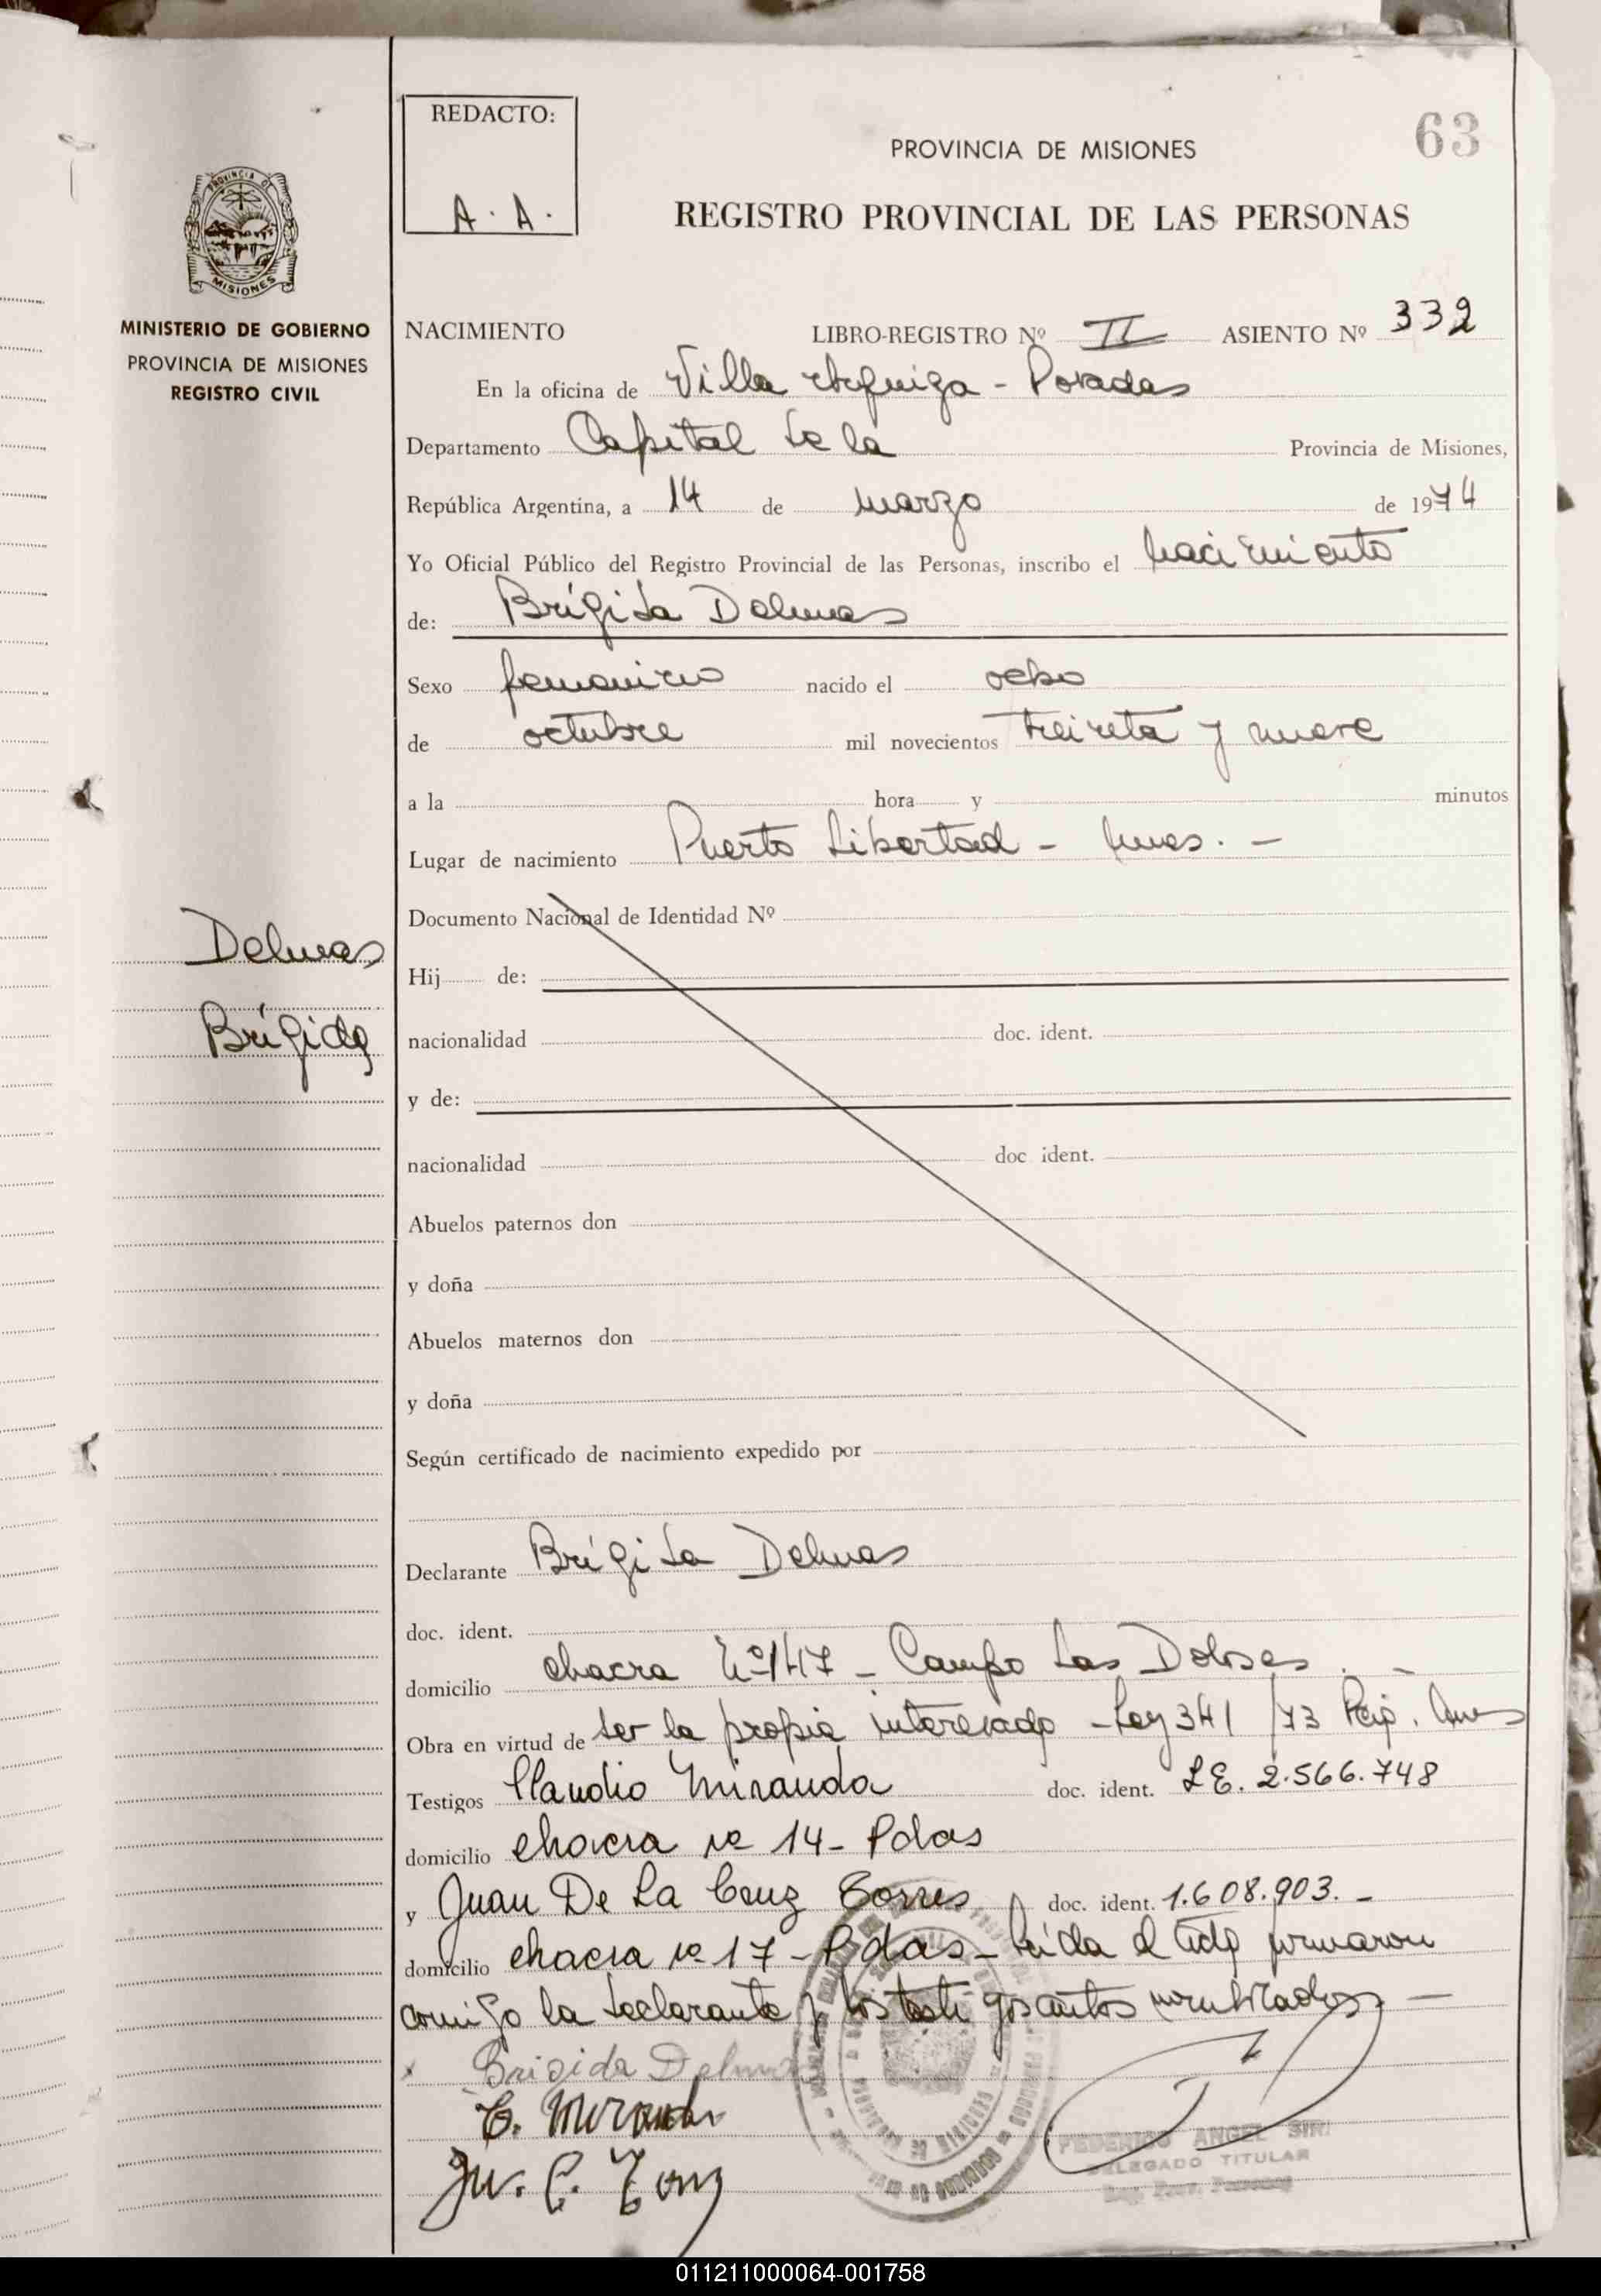 REDACTO:
A. A.
63
PROVINCIA DE MISIONES
REGISTRO PROVINCIAL DE LAS PERSONAS
PROVINCIA DE
MISIONES
MINISTERIO DE GOBIERNO
PROVINCIA DE MISIONES
REGISTRO CIVIL
NACIMIENTO LIBRO-REGISTRO Nº II ASIENTO Nº 332
En la oficina de Villa Urquiza - Posadas
Departamento Capital de la Provincia de Misiones,
República Argentina, a 14 de marzo de 1974
Yo Oficial Público del Registro Provincial de las Personas, inscribo el nacimiento
de: Brígida Delmas
Sexo femenino nacido el ocho
de octubre mil novecientos treinta y nueve
a la hora y minutos
Lugar de nacimiento Puerto Libertad - Mnes. -
Documento Nacional de Identidad Nº
Delmas
Hij de:
Brígida
nacionalidad doc. ident.
y de:
nacionalidad doc ident.
Abuelos paternos don
y doña
Abuelos maternos don
y doña
Según certificado de nacimiento expedido por
Declarante Brígida Delmas
doc. ident.
domicilio chacra Nº 147 - Campo Las Dolores. -
Obra en virtud de ser la propia interesado - Ley 341/73
Testigos Claudio Miranda doc. ident. L.E. 2.566.748
domicilio chacra Nº 14 - Pdas
y Juan De La Cruz Torres doc. ident. 1.608.903. -
domicilio chacra Nº 17 - Pdas - Leída el acta firmaron
conmigo la declarante y los testigos antes nombrados -
x Brigida Delmas
C. Miranda
FEDERICO ANGEL SIRI
DELEGADO TITULAR
011211000064-001758